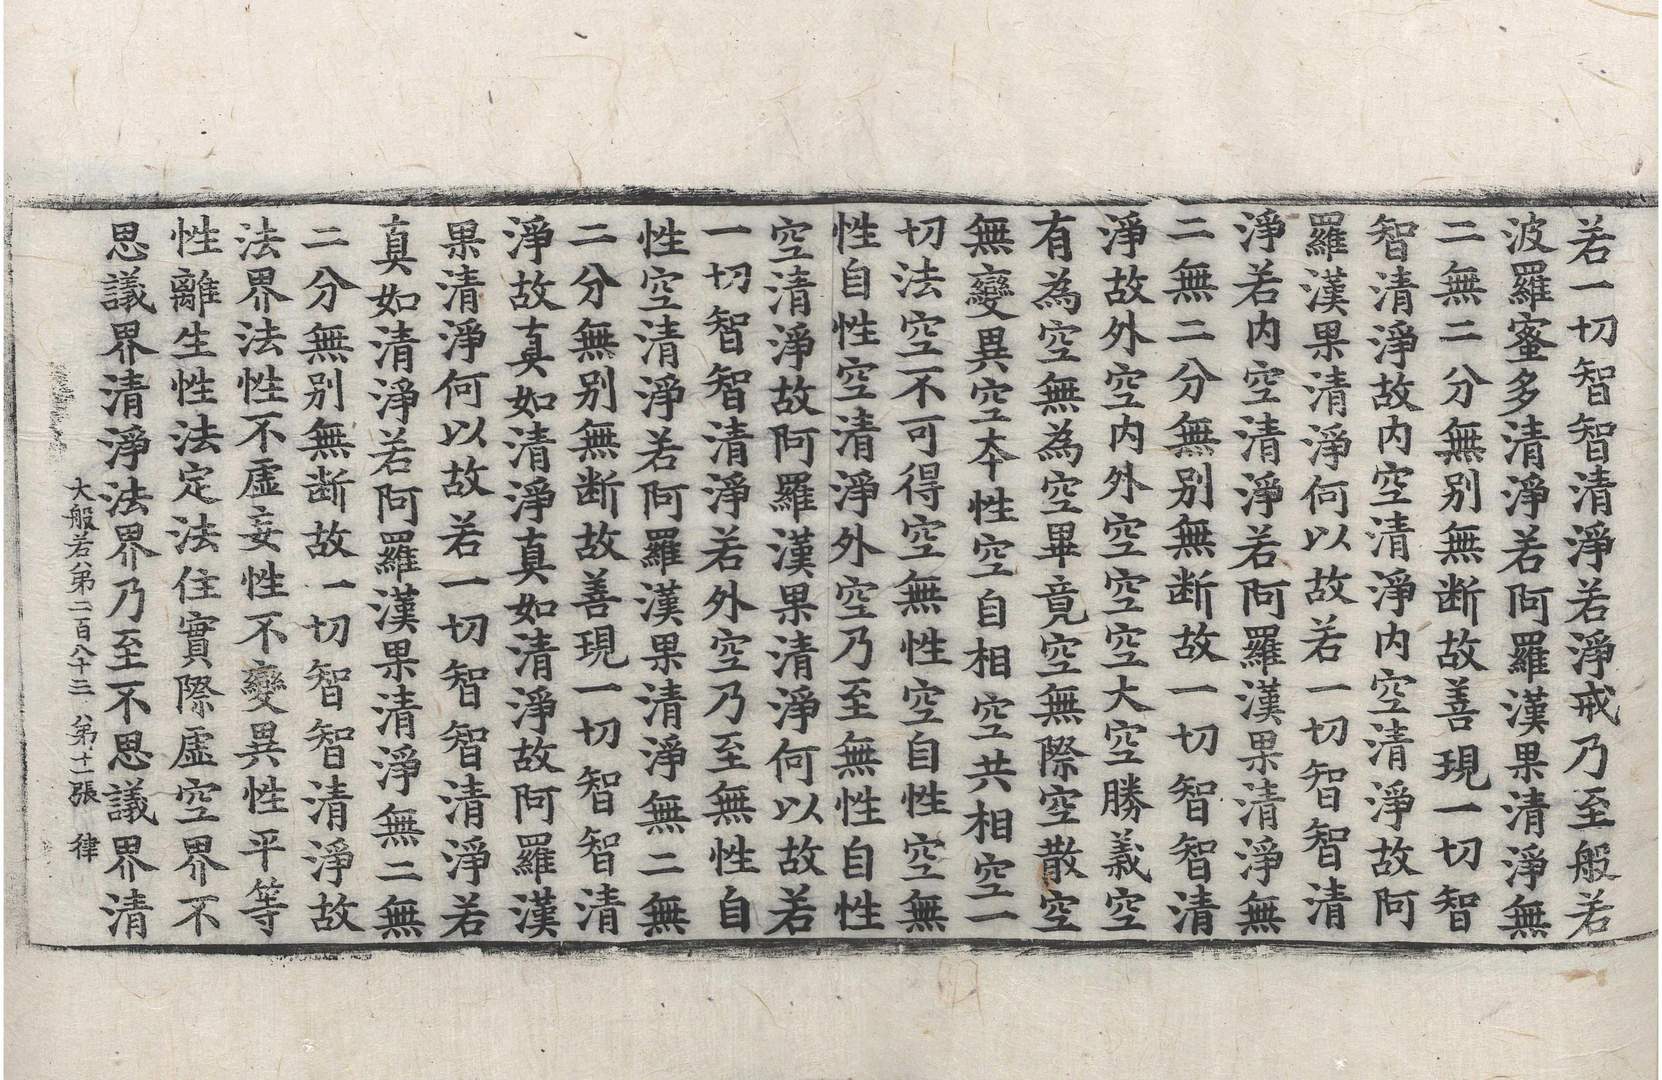 若一切智智清淨若淨戒乃至般若
波羅蜜多清淨若阿羅漢果清淨無
二無二分無別無断故善現一切智
智清淨故內空清淨內空清淨故阿
羅漢果清淨何以故若一切智智清
淨若內空清淨若阿羅漢果清淨無
二無二分無別無断故一切智智清
淨故外空內外空空空大空勝義空
有為空無為空畢竟空無際空散空
無變異空本性空自相空共相空一
切法空不可得空無性空自性空無
性自性空清淨外空乃至無性自性
空清淨故阿羅漢果清淨何以故若
一切智智清淨若外空乃至無性自
性空清淨若阿羅漢果清淨無二無
二分無別無断故善現一切智智清
淨故真如清淨真如清淨故阿羅漢
果清淨何以故若一切智智清淨若
真如清淨若阿羅漢果清淨無二無
二分無別無断故一切智智清淨故
法界法性不虛妄性不變異性平等
性離生性法定法住實際虛空界不
思議界清淨法界乃至不思議界清
大般若第二百八十三 第十一張 律